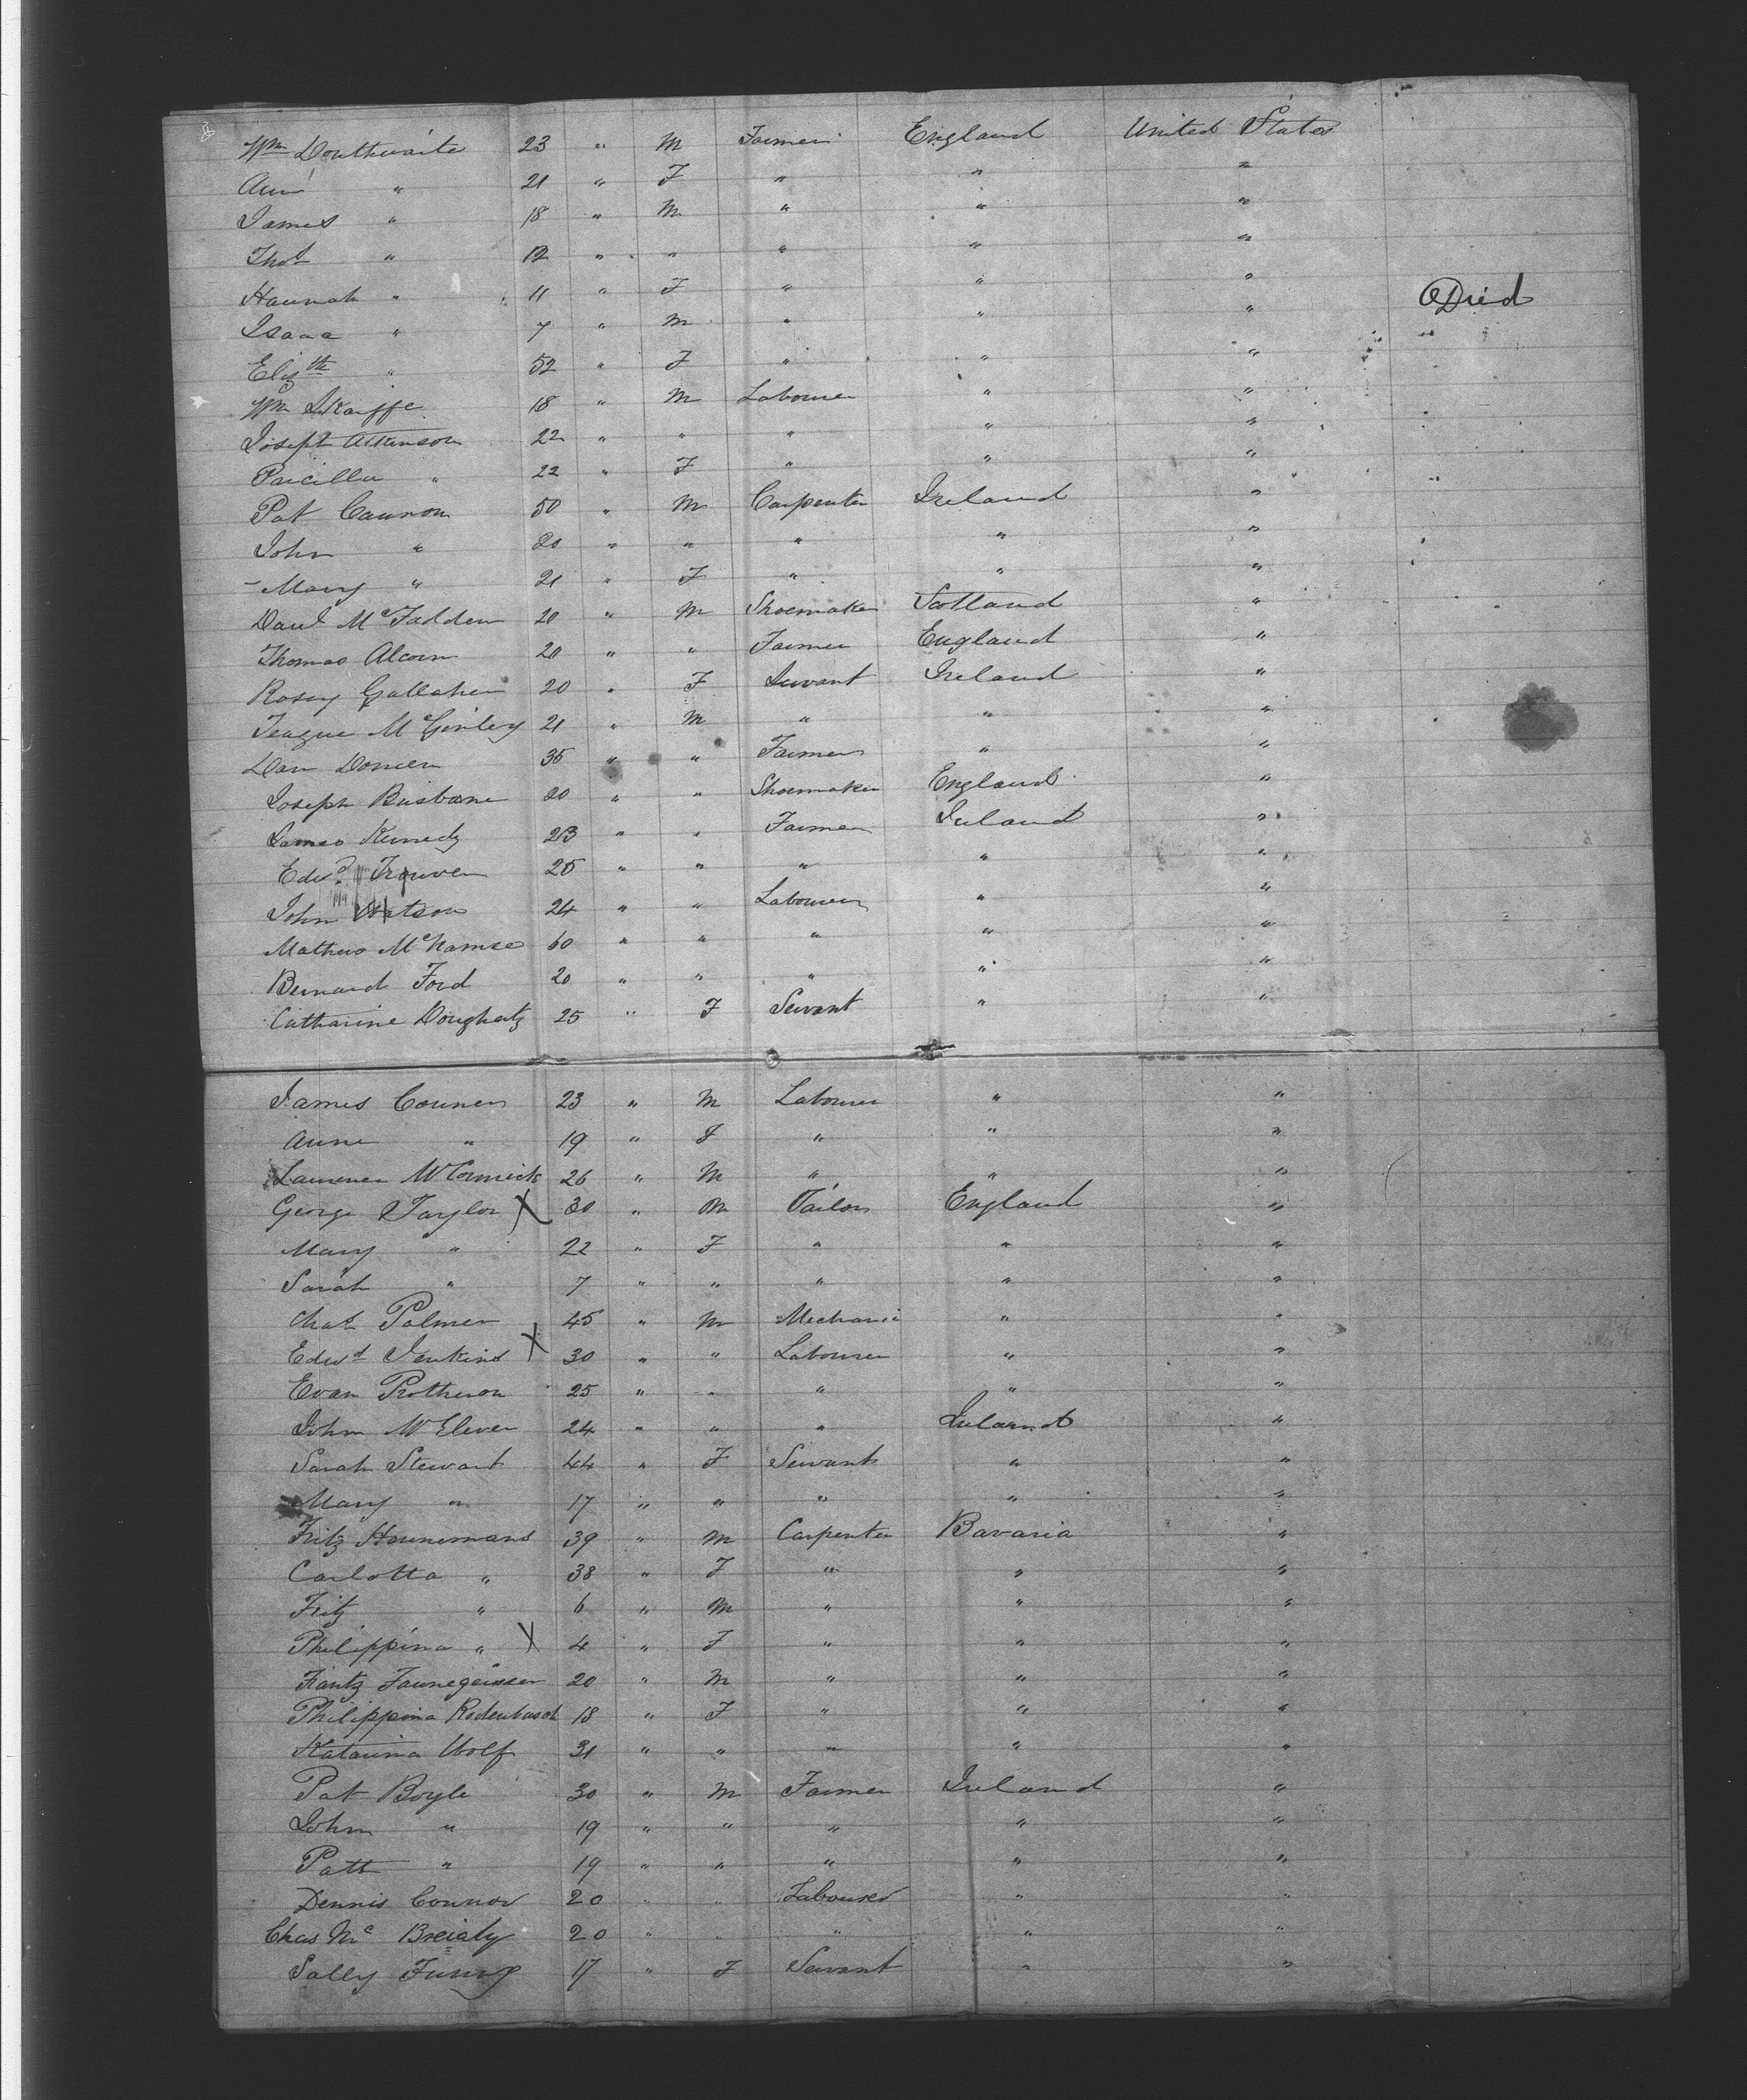 Wm Douthwaite 23 " M Farmer England United States
Ann " 21 " F " " "
James " 18 " M " " "
Thos " 12 " " " " "
Hannah " 11 " F " " " Died
Isaac " 7 " M " " "
Elizth " 52 " F " " "
Wm Skaiffe 18 " M Labourer " "
Joseph Atkinson 22 " " " " "
Pricilla " 22 " F " " "
Pat Cannon 50 " M Carpenter Ireland "
John " 20 " " " " "
Mary " 21 " F " " "
Danl McFadden 20 " M Shoemaker Scotland "
Thomas Alcorn 20 " " Farmer England "
Rosey Gallaher 20 " F Servant Ireland "
Teague McGinley 21 " M " " "
Dan 35 " " Farmer " "
Joseph Brisbane 20 " " Shoemaker England "
James Kennedy 23 " " Farmer Ireland "
Edwd 25 " " " " "
John Watson 24 " " Labourer " "
Mathew McNamee 60 " " " " "
Bernard Ford 20 " " " " "
Catharine Dougherty 25 " F Servant " "
James Conners 23 " M Labourer " "
Anne " 19 " F " " "
Laurence McCormick 26 " M " " "
George Taylor X 30 " M Tailor England "
Mary " 22 " F " " "
Sarah " 7 " " " " "
Chas Palmer 45 " M Mechanic " "
Edwd Jenkins X 30 " " Labourer " "
Evan Protheroe 25 " " " " "
John McElever 24 " " " Ireland "
Sarah Stewart 44 " F Servant " "
Mary " 17 " " " " "
Fritz Hennemans 39 " M Carpenter Bavaria "
Carlotta " 38 " F " " "
Fritz " 6 " M " " "
Philippina " X 4 " F " " "
Frantz 20 " M " " "
Philippina Rodenbusch 18 " F " " "
Katarina Wolf 31 " " " " "
Pat Boyle 30 " M Farmer Ireland "
John " 19 " " " " "
Patt " 19 " " " " "
Dennis Connor 20 " " Labourer " "
Chas Mc 20 " " " " "
Sally 17 " F Servant " "